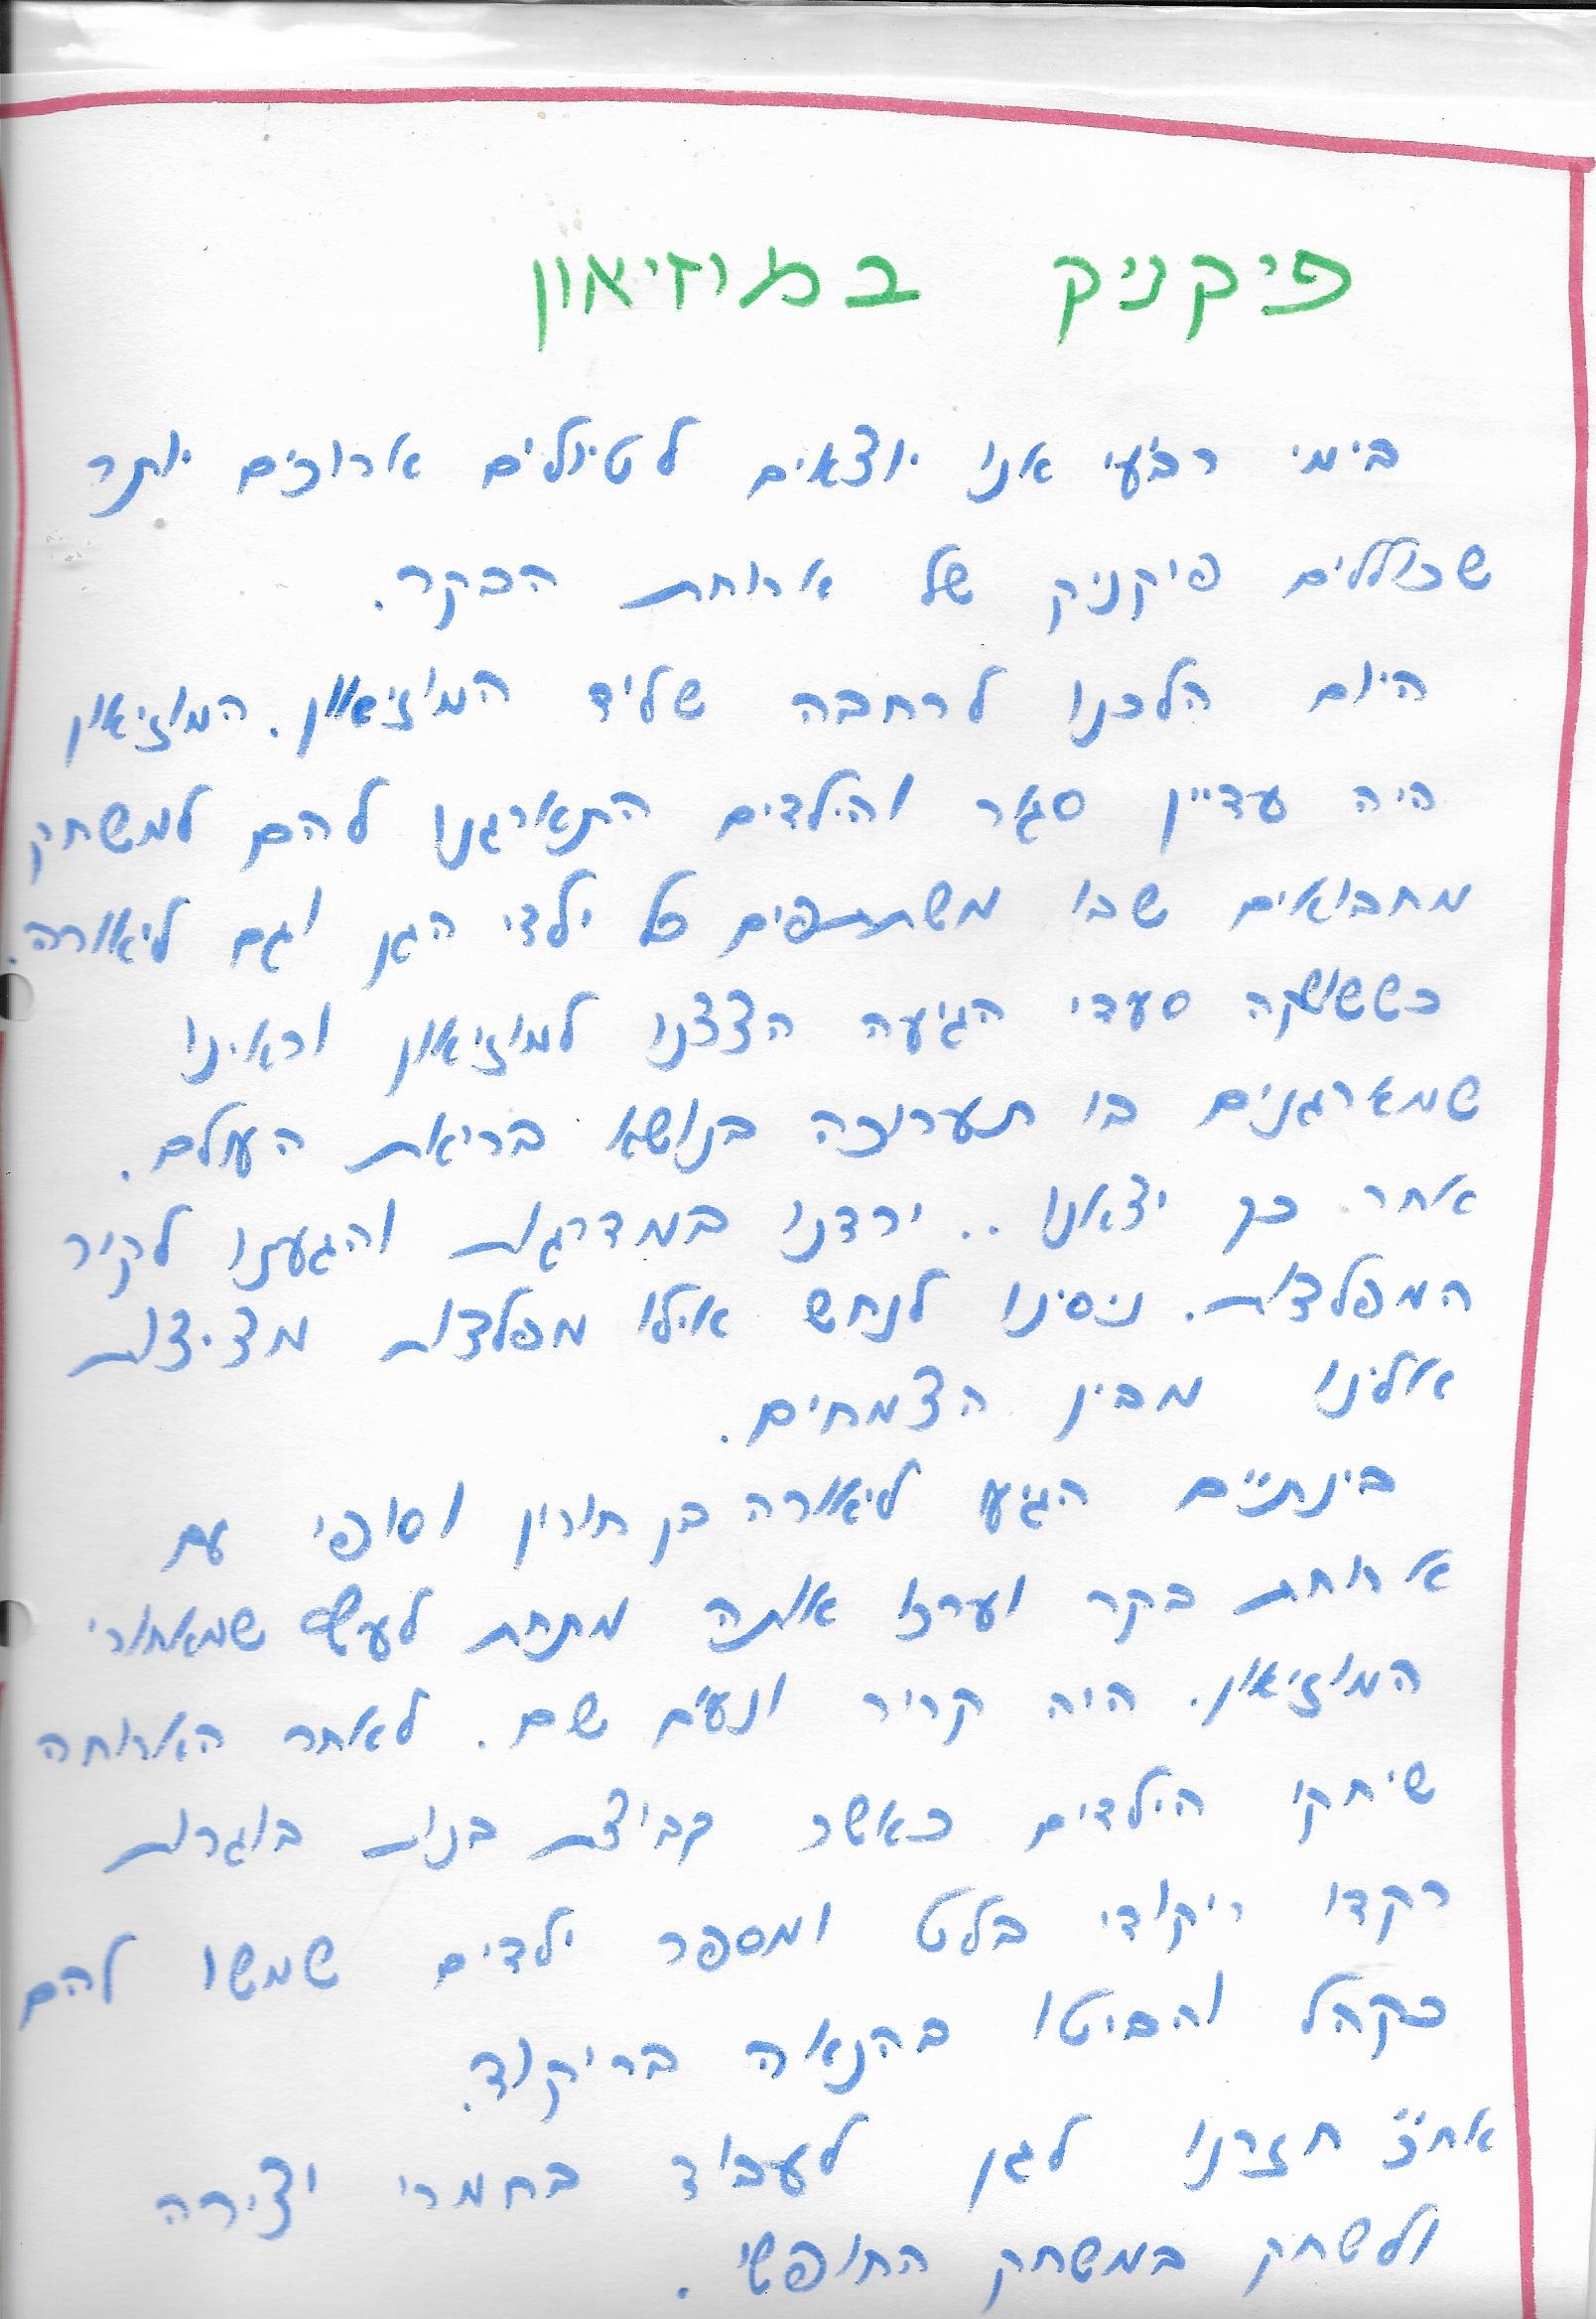 פיקניק במוזיאון
בימי רביעי אנו יוצאים לטיולים ארוכים יותר
שכוללים פיקניק של ארוחת הבקר.
היום הלכנו לרחבה שליד המוזיאון. המוזיאון
היה עדיין סגור והילדים התארגנו להם למשחק
מחבואים שבו משתתפים כל ילדי הגן וגם ליאורה.
כששושקה סעדי הגיעה הצצנו למוזיאון וראינו
שמארגנים בו תערוכה בנושא בריאת העולם.
אחר כך יצאנו.. ירדנו במדרגות והגענו לקיר
המפלצות. ניסינו לנחש אילו מפלצות מציצות
אלינו מבין הצמחים.
בינתיים הגיעו ליאורה בן חורין וסופי עם
ארוחת בקר וערכו אותה מתחת לעץ שמאחורי
המוזיאון. היה קריר ונעים שם. לאחר הארוחה
שיחקו הילדים כאשר קבוצת בנות בוגרות
רקדו ריקודי בלט ומספר ילדים שמשו להם
כקהל והביטו בהנאה בריקוד.
אח"כ חזרנו לגן לעבוד בחמרי יצירה
ולשחק במשחק החופשי.